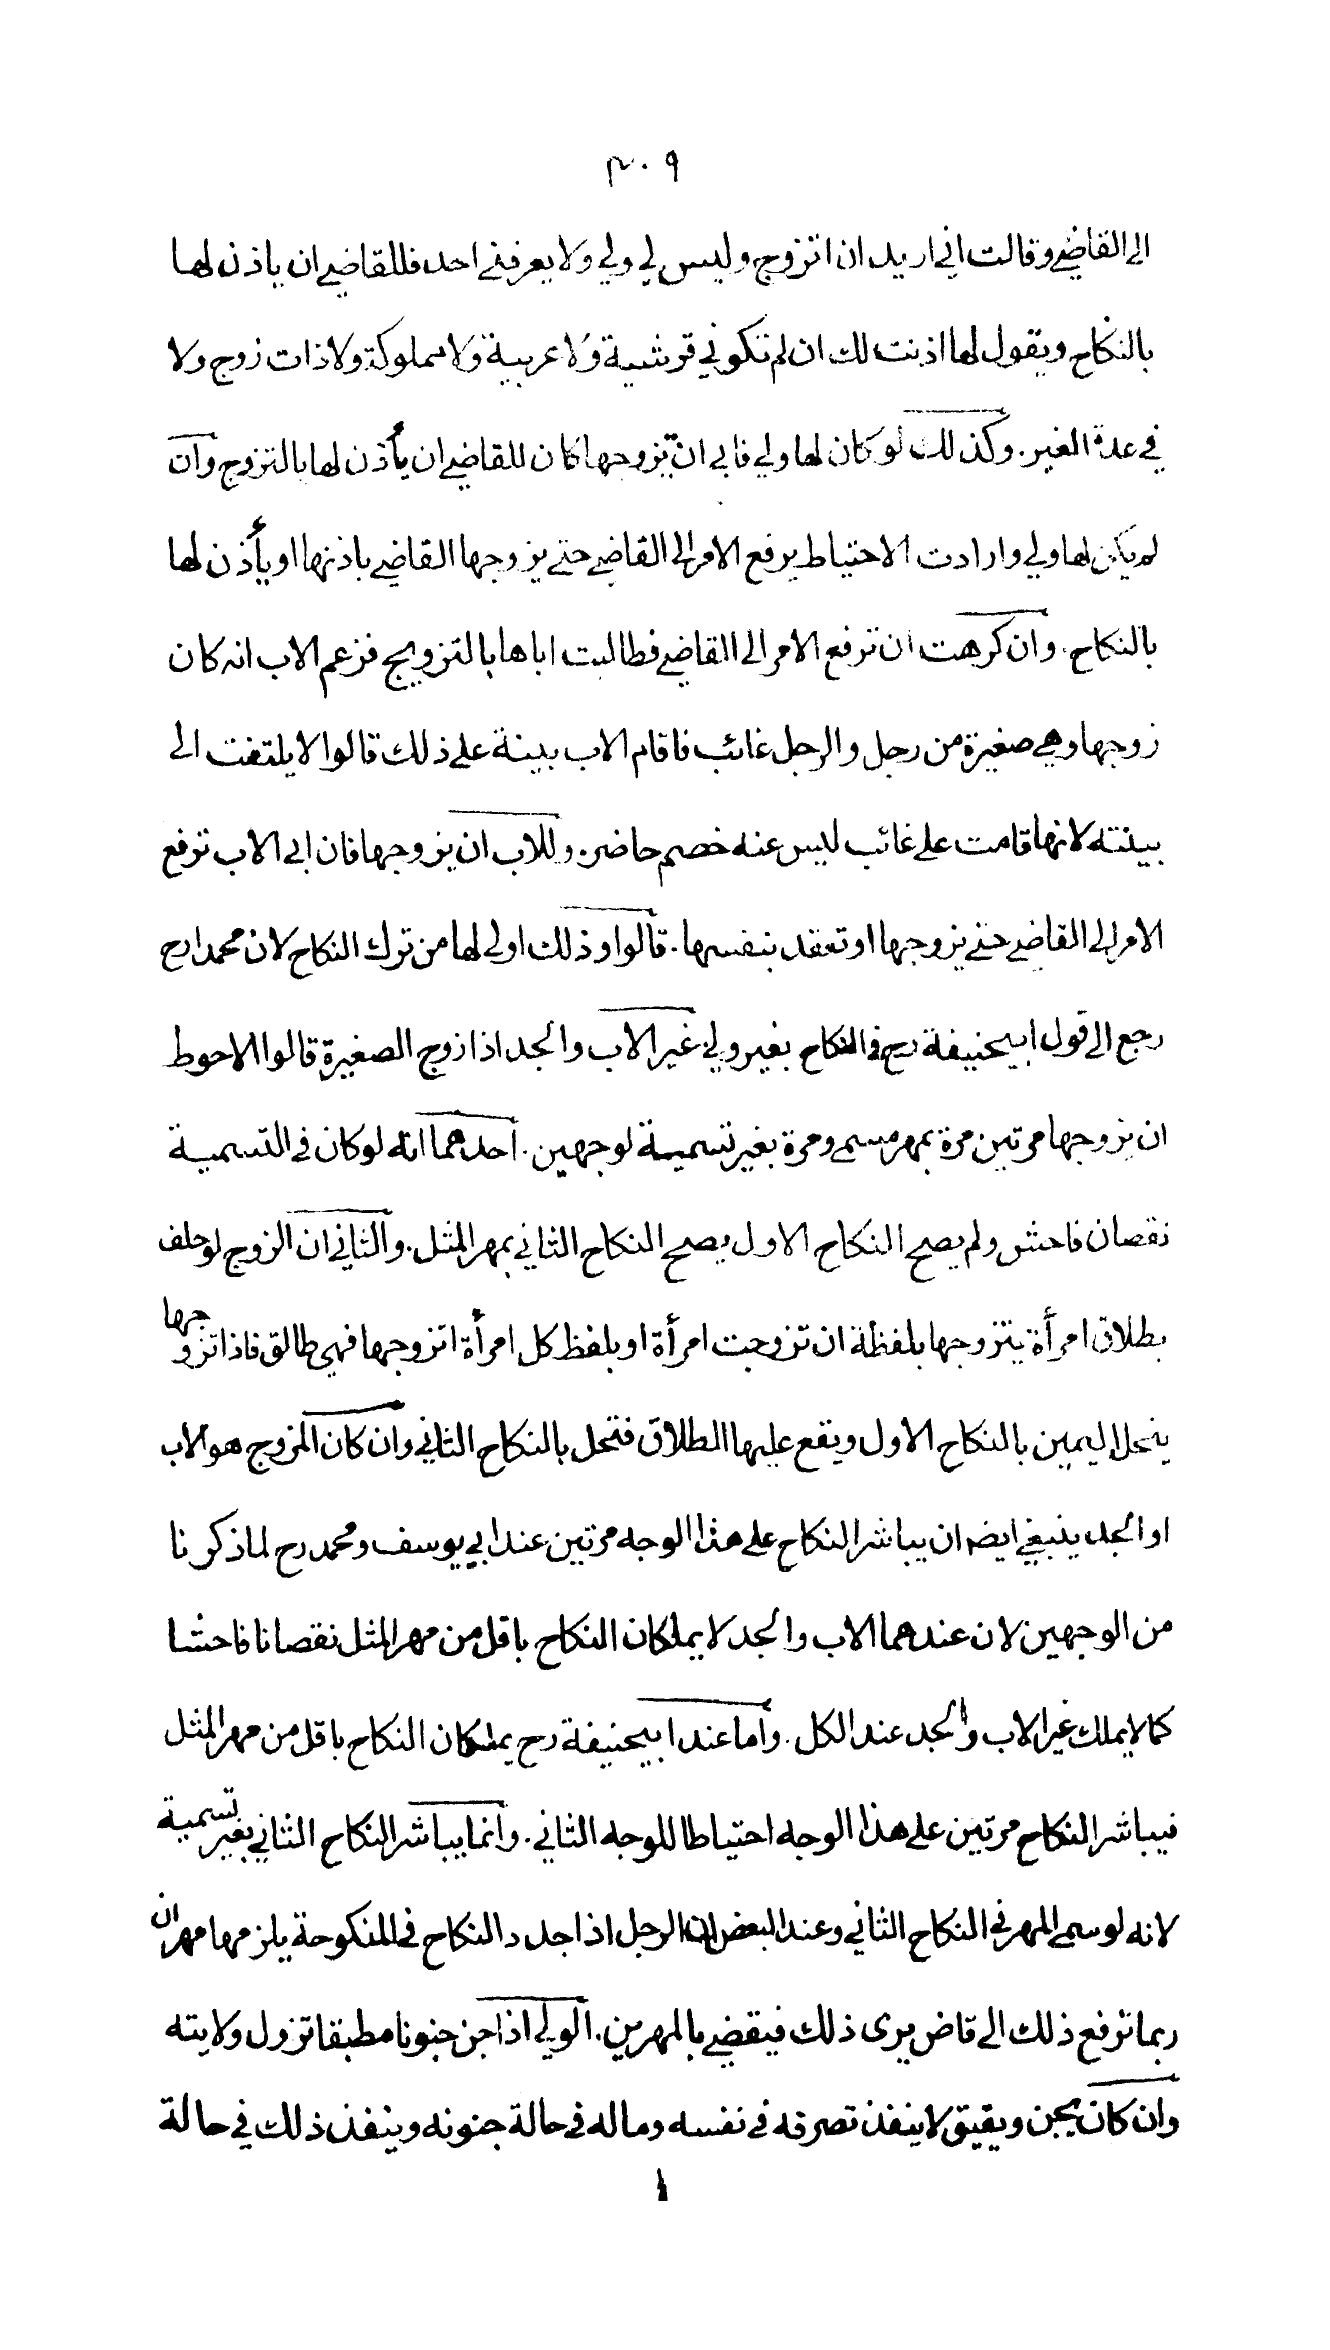 ٣٠٩
الى القاضي وقالت اني اريد ان اتزوج وليس لي ولي ولا يعرفني احد فللقاضي ان ياذن لها
بالنكاح ويقول لها اذنت لك ان لم تكوني قرشية ولا عربية ولا مملوكة ولا ذات زوج ولا
في عدة الغير. وكذلك لو كان لها ولي فابى ان يزوجها كان للقاضي ان يأذن لها بالتزوج وان
لم يكن لها ولي وارادت الاحتياط يرفع الامر الى القاضي حتى يزوجها القاضي باذنها او يأذن لها
بالنكاح. وان كرهت ان ترفع الامر الى القاضي فطالبت اباها بالتزويج فزعم الاب انه كان
زوجها وهي صغيرة من رجل والرجل غائب فاقام الاب بينة على ذلك قالوا لا يلتفت الى
بينته لانها قامت على غائب ليس عنه خصم حاضر. وللاب ان يزوجها فان ابى الاب ترفع
الامر الى القاضي حتى يزوجها او تعقد بنفسها. قالوا وذلك اولى لها من ترك النكاح لان محمدا رح
رجع الى قول ابيحنيفة رح في النكاح بغير ولي. غير الاب والجد اذا زوج الصغيرة قالوا الاحوط
ان يزوجها مرتين مرة بمهر مسمى ومرة بغير تسمية لوجهين. احدهما انه لو كان في التسمية
نقصان فاحش ولم يصح النكاح الاول يصح النكاح الثاني بمهر المثل. والثاني ان الزوج لو حلف
بطلاق امرأة يتزوجها بلفظة ان تزوجت امرأة او بلفظ كل امرأة اتزوجها فهي طالق فاذا تزوجها
ينحل اليمين بالنكاح الاول ويقع عليها الطلاق فتحل بالنكاح الثاني وان كان المزوج هو الاب
او الجد ينبغي ايضه ان يباشر النكاح على هذا الوجه مرتين عند ابي يوسف ومحمد رح لما ذكرنا
من الوجهين لان عندهما الاب والجد لا يملكان النكاح باقل من مهر المثل نقصانا فاحشا
كما لا يملك غير الاب والجد عند الكل. واما عند ابيحنيفة رح يملكان النكاح باقل من مهر المثل
فيباشر النكاح مرتين على هذا الوجه احتياطا للوجه الثاني. وانما يباشر النكاح الثاني بغير تسمية
لانه لو سمى المهر في النكاح الثاني وعند البعض ان الرجل اذا جدد النكاح في المنكوحة يلزمها مهران
ربما ترفع ذلك الى قاض يرى ذلك فيقضي بالمهرين. الولي اذا جن جنونا مطبقا تزول ولايته
وان كان يجن ويفيق لا ينفذ تصرفه في نفسه وماله في حالة جنونه وينفذ ذلك في حالة